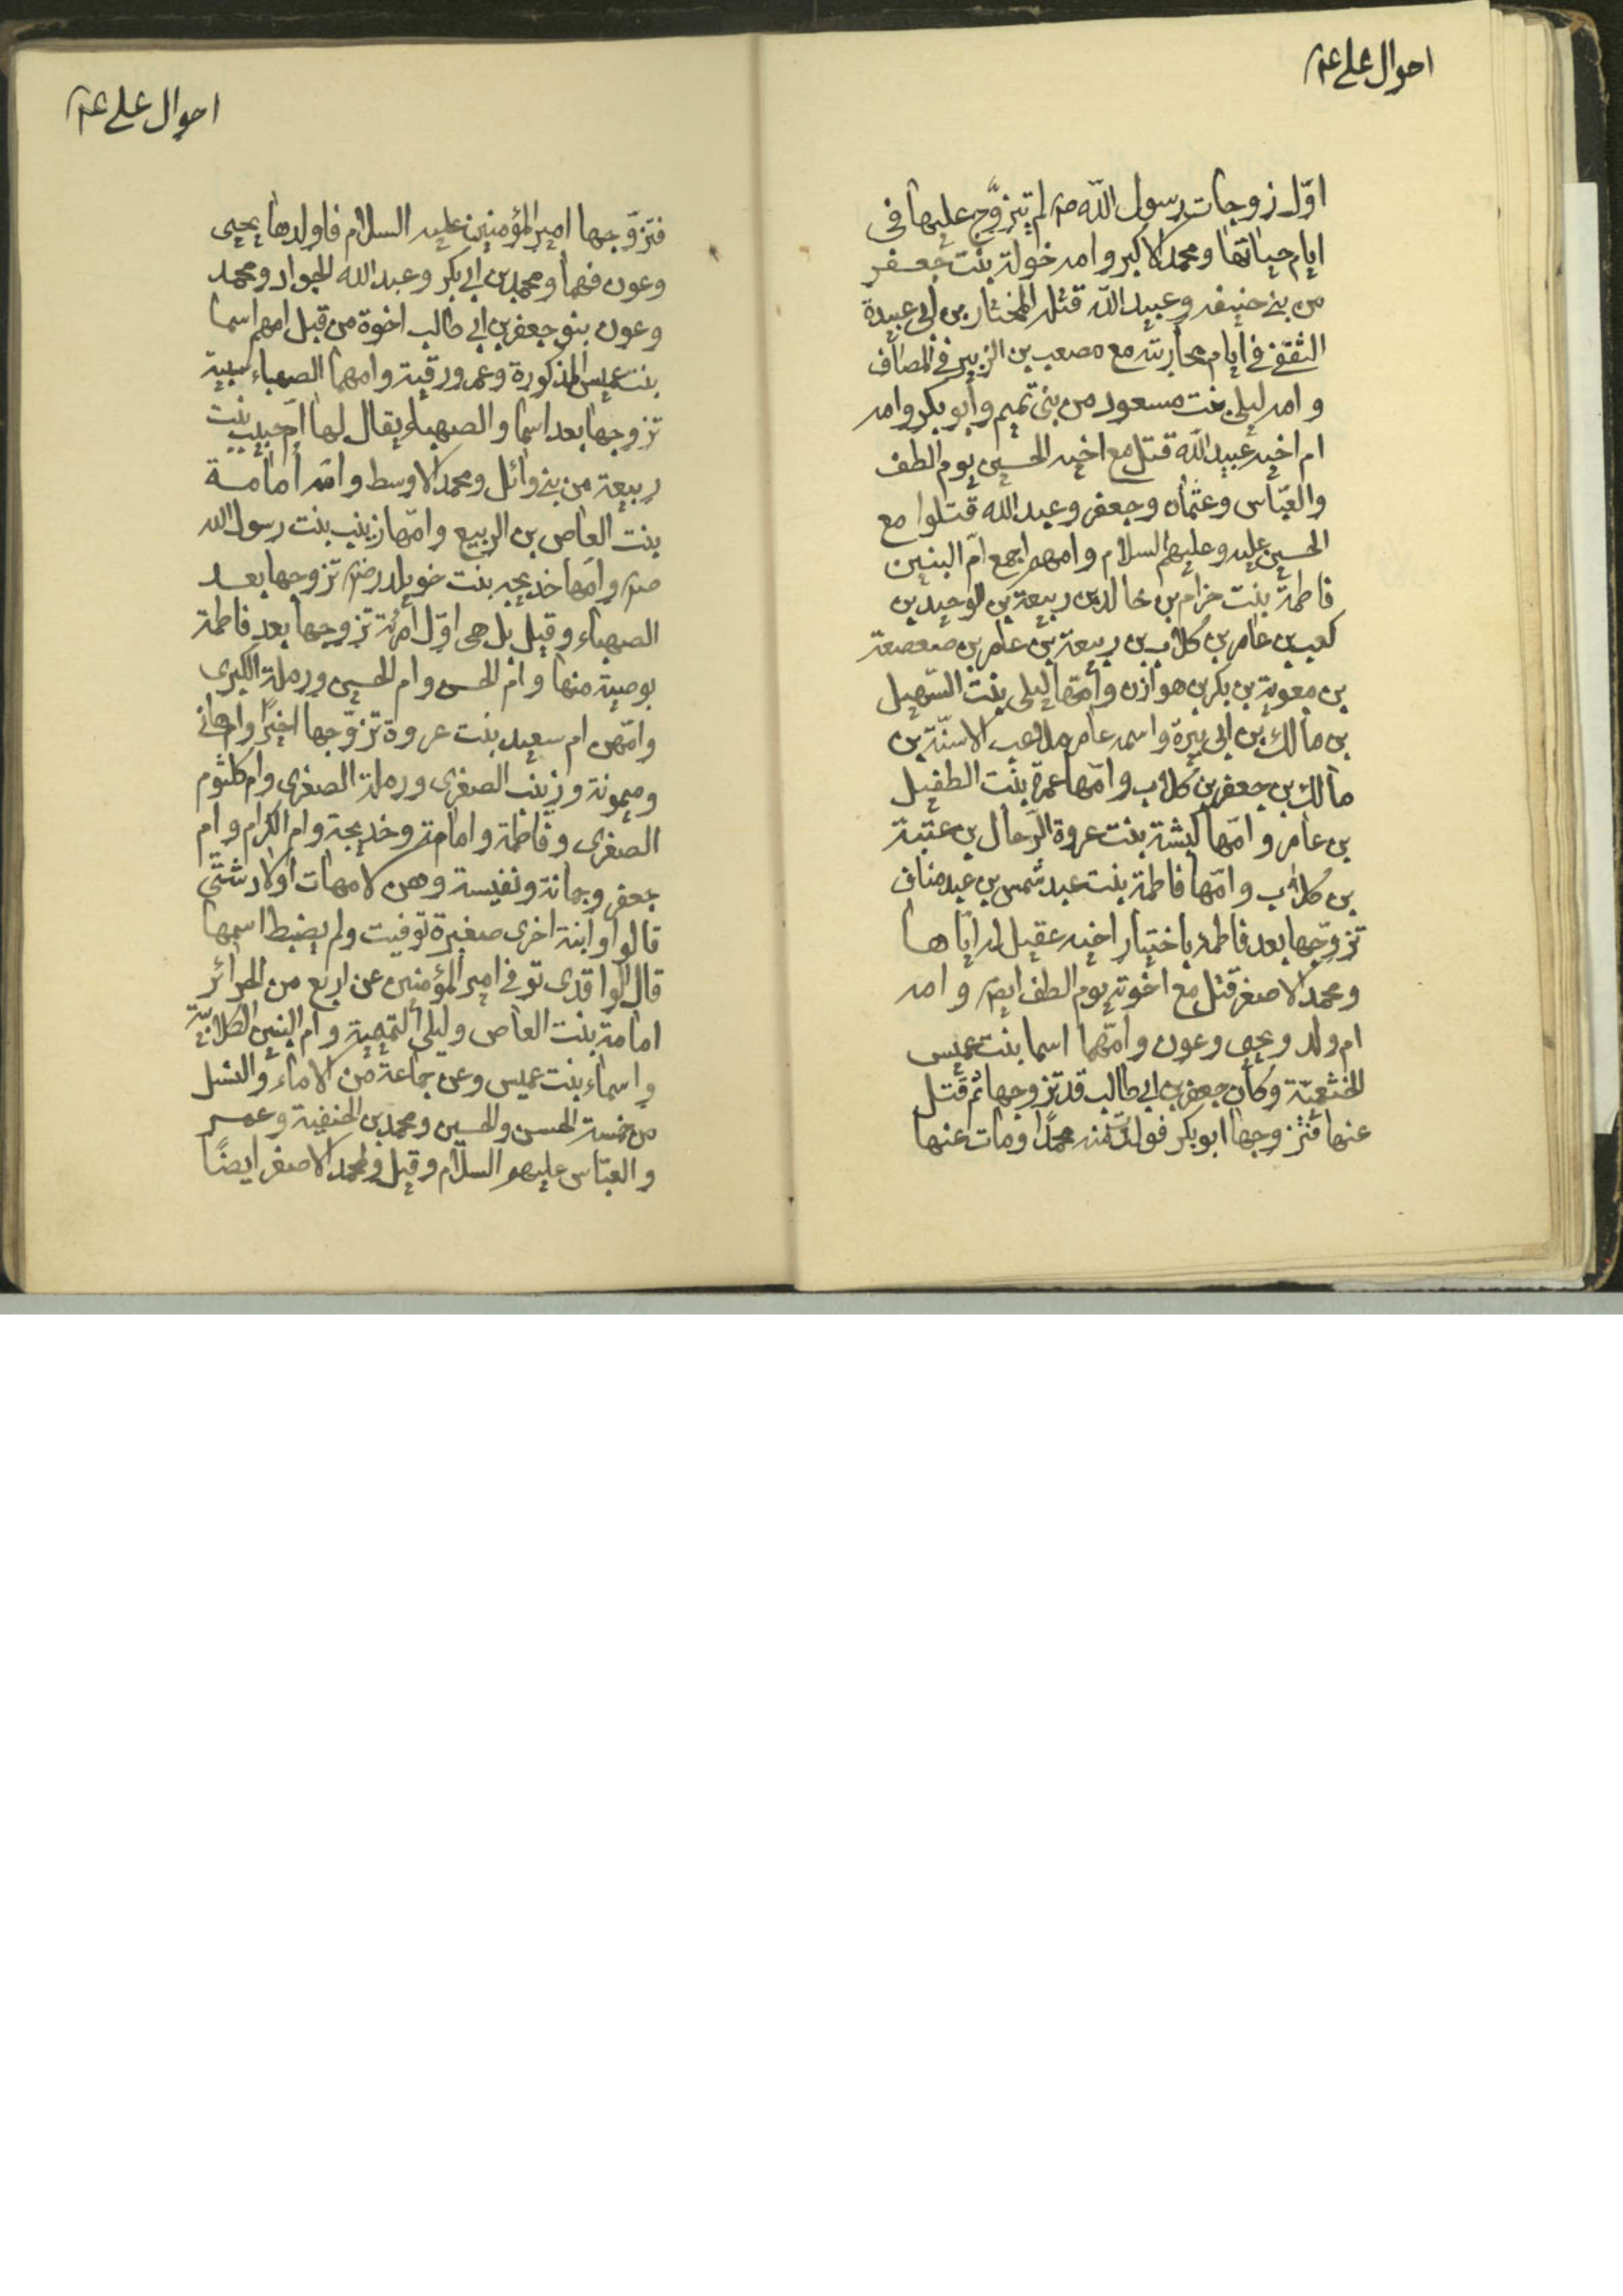 احوال علی ع
اوّل زوجات رسول اللّه ص لم يتزوّج عليها فی
ايام حياتها ومحمد الاكبر وامه خولة بنت جعفر
من بنی حنيفه وعبيد اللّه قتله المختار بن ابی عبيدة
الثقفی فی ايام محاربته مع مصعب بن الزبير فی المصاف
وامه ليلی بنت مسعود من بنی تميم وابو بكر وامه
ام اخيه عبيد اللّه قتل مع اخيه الحسين يوم الطف
والعبّاس وعثمان وجعفر وعبد اللّه قتلوا مع
الحسين عليه وعليهم السلام وامهم اجمع امّ البنين
فاطمة بنت حزام بن خالد بن ربيعة بن لوحيد بن
كعب بن عامر بن كلاب بن ربيعة بن عامر بن صعصعة
بن معوية بن بكر بن هوازن وامّها ليلی بنت السّهيل
بن مالك بن ابی برة واسمه عامر ملاعب الاسنّة بن
مالك بن جعفر بن كلاب وامّها عمرة بنت الطفيل
بن عامر وامّها كبشة بنت عروة الرّحال بن عتبة
بن كلاب وامّها فاطمة بنت عبد شمس بن عبد مناف
تزوّجها بعد فاطمة باختيار اخيه عقيل له ايّاها
ومحمد الاصغر قتل مع اخوته يوم الطف ايض وامه
ام ولد ويحيی وعون وامّهما اسما بنت عميس
الخثعميّة وكان جعفر بن ابی طالب قد تزوجها ثم قتل
عنها فتزوجها ابو بكر فولدت منه محمدًا ومات عنها
احوال علی ع
فتزوّجها امير المؤمنين عليه السلام فاولدها يحيی
وعون فهما ومحمد بن ابی بكر وعبد الله الجواد ومحمد
وعون بنو جعفر بن ابی طالب اخوة من قبل امهم اسما
بنت عميس المذكورة وعمر ورقية وامهما الصهباء سبية
تزوجها بعد اسما والصهباء يقال لها امّ حبيب بنت
ربيعة من بنی وائل ومحمد الاوسط وامّه أمامة
بنت العاص بن الربيع وامّها زينب بنت رسول الله
ص وامّها خديجه بنت خويلد رض تزوجها بعد
الصهباء وقيل بل هی اوّل امرئة تزوجها بعد فاطمة
بوصية منها وام الحسن وام الحسين ورملة الكبری
وامّهن ام سعيد بنت عروة تزوّجها اخيرًا وام هانی
وميمونة وزينب الصغری ورملة الصغری وام كلثوم
الصغری وفاطمة وامامة وخديجة وام الكرام وام
جعفر وجمانة ونفيسة وهن لامهات اولاد شتّی
قالوا وابنة اخری صغيرة توفيت ولم يضبط اسمها
قال الواقدی توفی امير المؤمنين عن اربع من الحرائر
امامة بنت العاص وليلی التميمية وام البنين الكلابيّة
واسماء بنت عميس وعن جماعة من الاماء والنسل
من خمسة الحسن والحسين ومحمد بن الحنفية وعمر
والعبّاس عليهم السلام وقيل ولمحمد الاصغر ايضًا